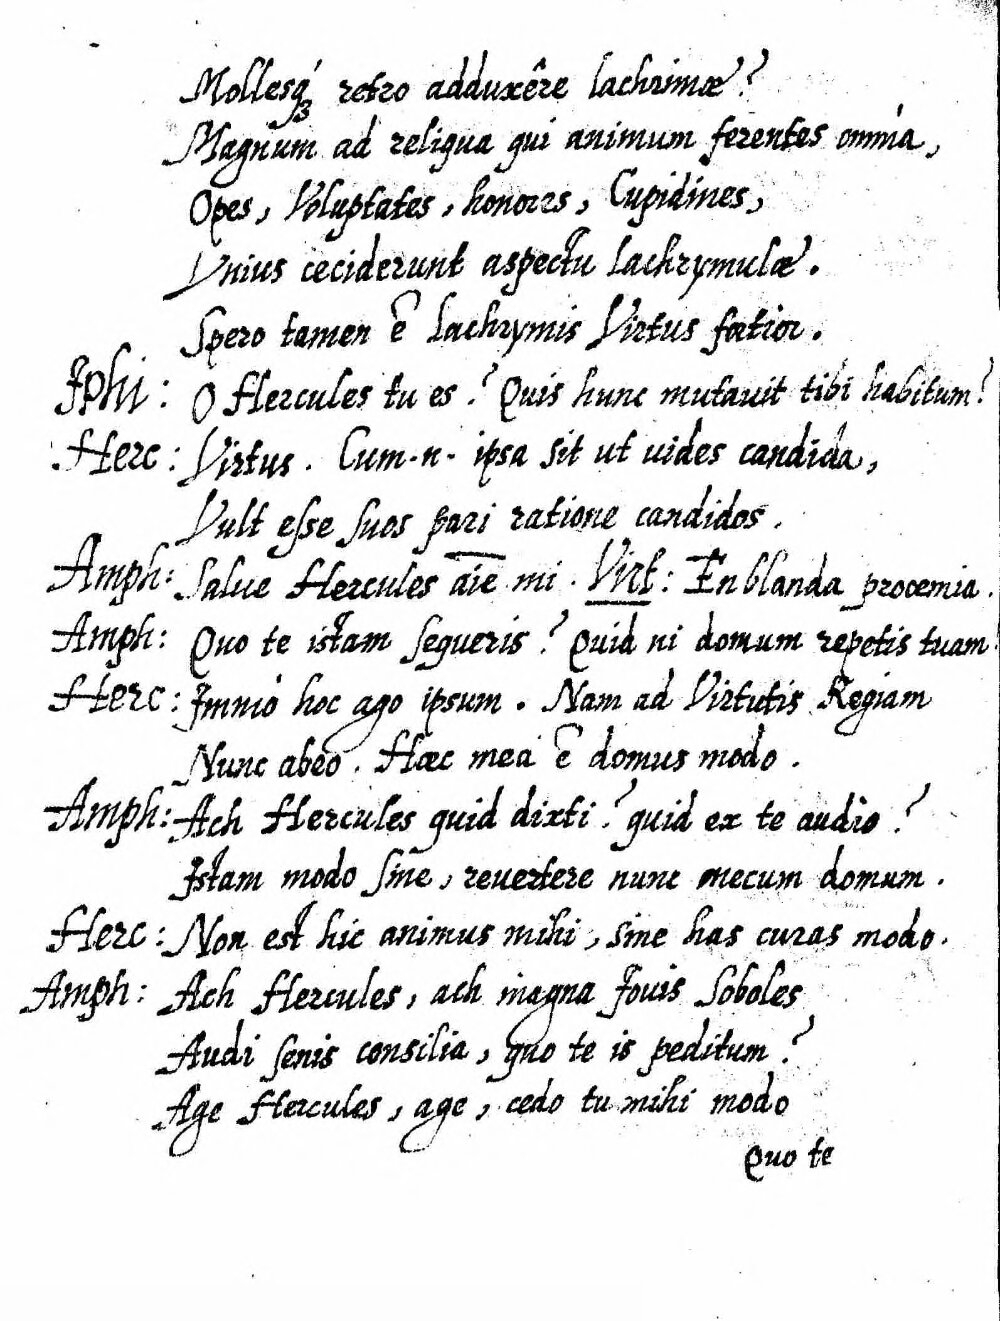 Mollesq́ꝫ retro adduxêre lachrimæ?
Magnum ad reliqua qui animum ferentes omnia,
Opes, Voluptates, honores, Cupidines,
Vnius ceciderunt aspectu lachrymulæ.
Spero tamen ē lachrymis Virtus fœtior.
Iphi: O Hercules tu es? Quis hunc mutauit tibi habitum?
Herc: Virtus. Cum·n· ipsa sit ut uides candida,
Vult esse suos pari ratione candidos.
Amph: Salue Hercules aīe mi. Virt: En blanda proœmia.
Amph: Quo te istam sequeris? Quid ni domum repetis tuam.
Herc: Immò hoc ago ipsum. Nam ad Virtutis Regiam
Nunc abeo. Hæc mea ē domus modo.
Amph: Ach Hercules quid dixti? quid ex te audio?
Istam modo sine, reuertere nunc mecum domum.
Herc: Non est hic animus mihi, sine has curas modo.
Amph: Ach Hercules, ach magna Jouis soboles
Audi senis consilia, quo te is peditum?
Age Hercules, age, cedo tu mihi modo
Quo te